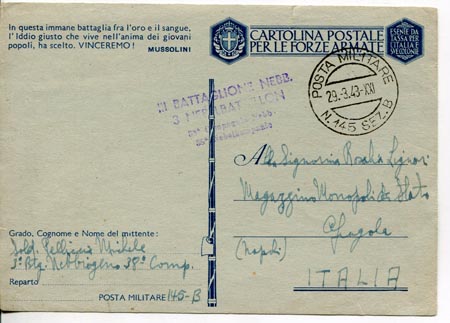 In questa immane battaglia fra l'oro e il sangue,
l'Iddio giusto che vive nell'anima dei giovani
popoli, ha scelto. VINCEREMO! MUSSOLINI
CARTOLINA POSTALE
PER LE FORZE ARMATE
ESENTE DA
TASSA PER
L'ITALIA E
COLONIE
POSTA MILITARE
29.3.43-XXI
N.145 SEZ.B
III BATTAGLIONE NEBB.
3 NEBBATAILLON
Compagnia Nebb.
Alla Signorina
Magazzino Monopoli di Stato
(Napoli)
ITALIA
Grado, Cognome e Nome del mittente:
Sold. Michele
3° Btg. Nebbiogeno 38ª Comp.
Reparto
POSTA MILITARE 145-B